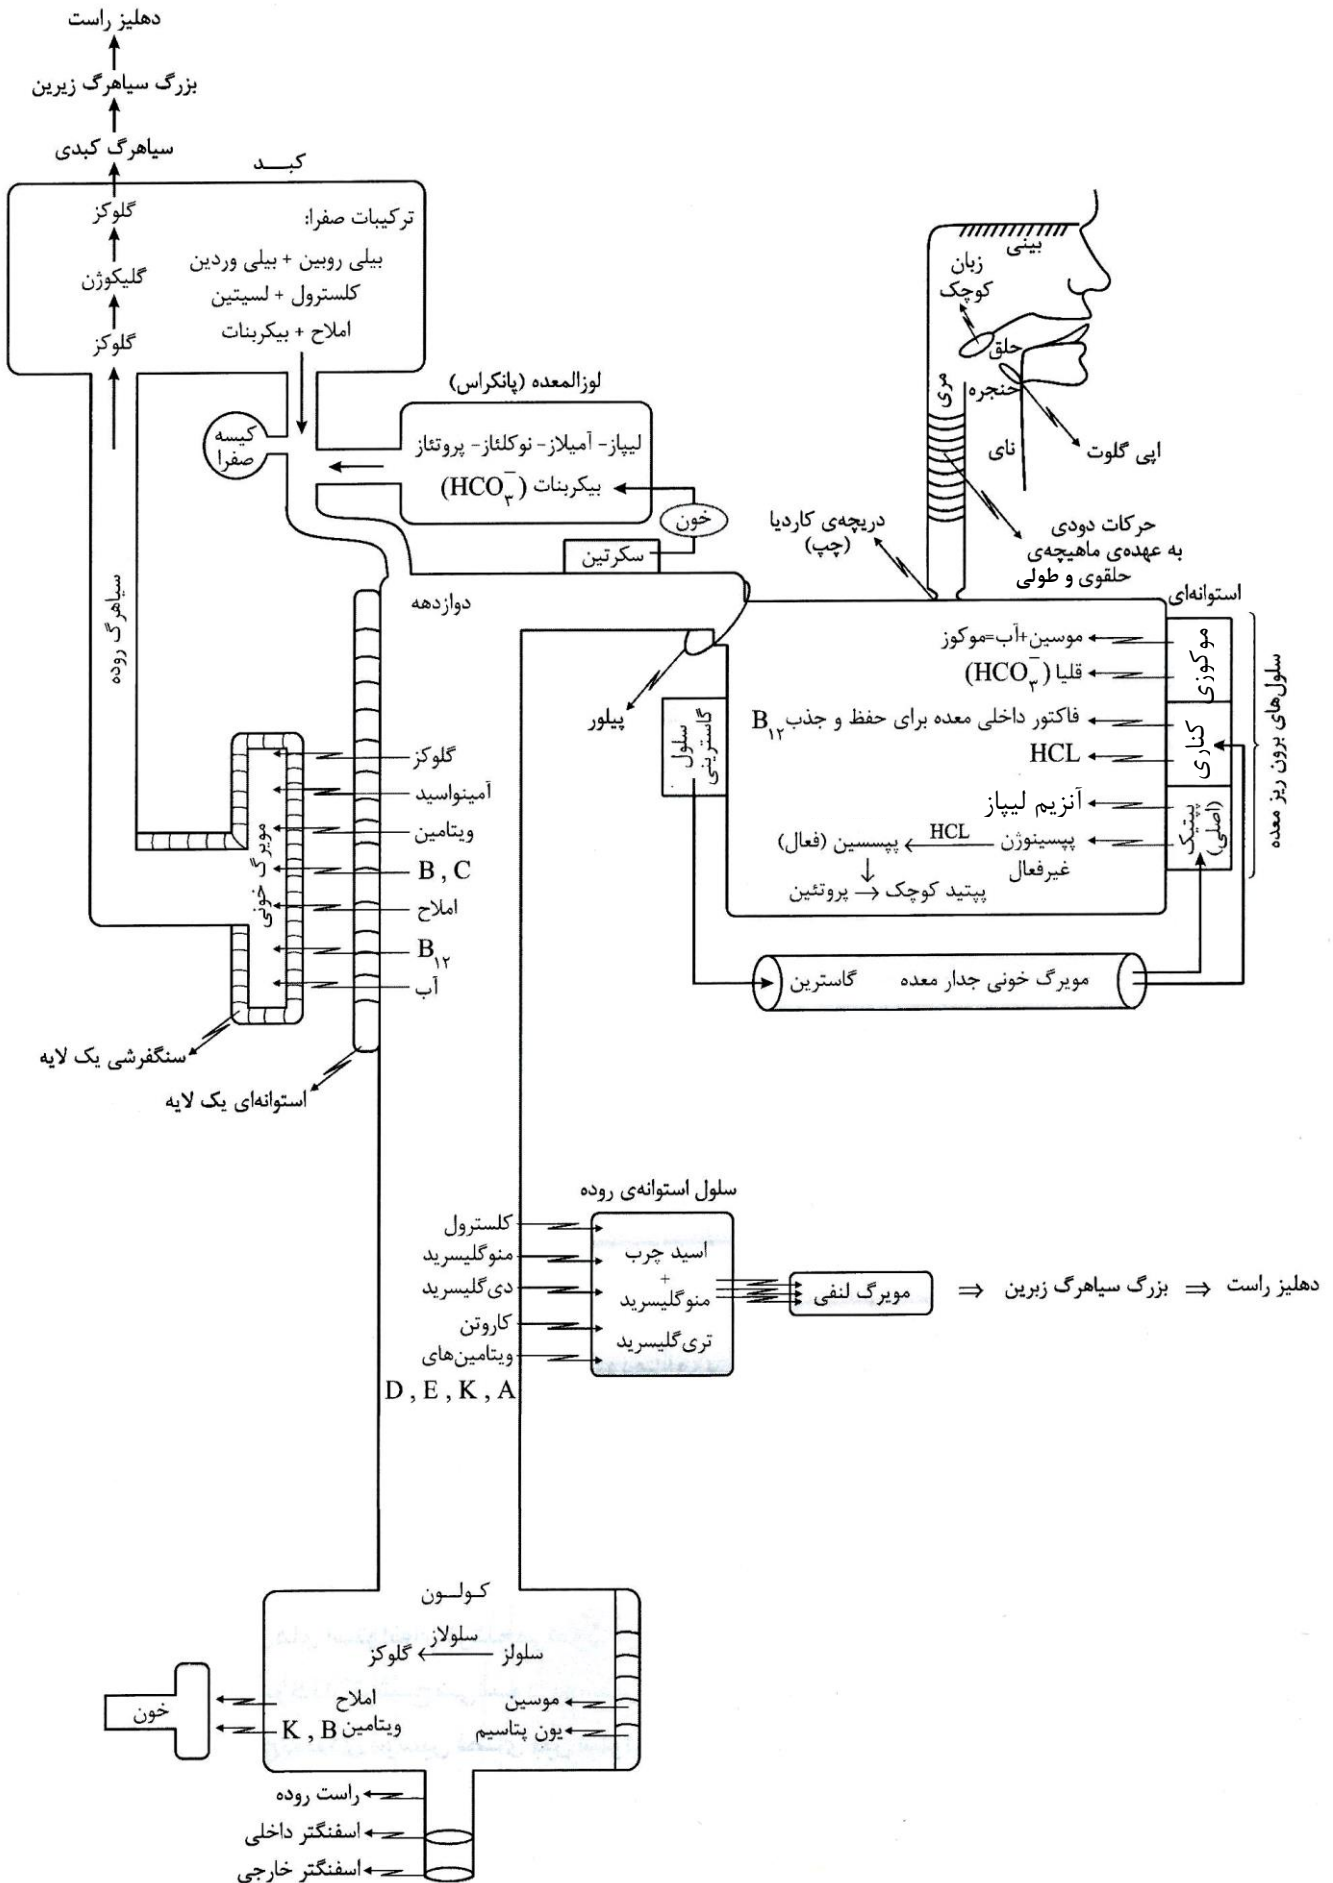 دهلیز راست
بزرگ سیاهرگ زیرین
سیاهرگ کبدی
کبـــد
گلوکز
گلیکوژن
گلوکز
ترکیبات صفرا:
بیلی روبین + بیلی وردین
کلسترول + لسیتین
املاح + بیکربنات
کیسه
صفرا
لوزالمعده (پانکراس)
لیپاز- آمیلاز- نوکلئاز- پروتئاز
بیکربنات (HCO₃⁻)
خون
سکرتین
بینی
زبان
کوچک
حلق
حنجره
مری
نای
اپی گلوت
حرکات دودی
به عهده‌ی ماهیچه‌ی
حلقوی و طولی
دریچه‌ی کاردیا
(چپ)
استوانه‌ای
موکوزی
کناری
پپتیک
(اصلی)
سلول‌های برون ریز معده
موسین+آب=موکوز
قلیا (HCO₃⁻)
فاکتور داخلی معده برای حفظ و جذب B₁₂
HCL
آنزیم لیپاز
پپسینوژن HCL پپسسین (فعال)
غیرفعال
پپتید کوچک → پروتئین
سلول
گاسترینی
پیلور
گاسترین
مویرگ خونی جدار معده
دوازدهه
سیاهرگ روده
مویرگ خونی
گلوکز
آمینواسید
ویتامین
B , C
املاح
B₁₂
آب
سنگفرشی یک لایه
استوانه‌ای یک لایه
سلول استوانه‌ی روده
کلسترول
منوگلیسرید
دی‌گلیسرید
کاروتن
ویتامین‌های
D , E , K , A
اسید چرب
+
منوگلیسرید
تری‌گلیسرید
مویرگ لنفی ⇒ بزرگ سیاهرگ زبرین ⇒ دهلیز راست
کـولـــون
سلولز سلولاز گلوکز
موسین
یون پتاسیم
املاح
ویتامین K , B
خون
راست روده
اسفنگتر داخلی
اسفنگتر خارجی